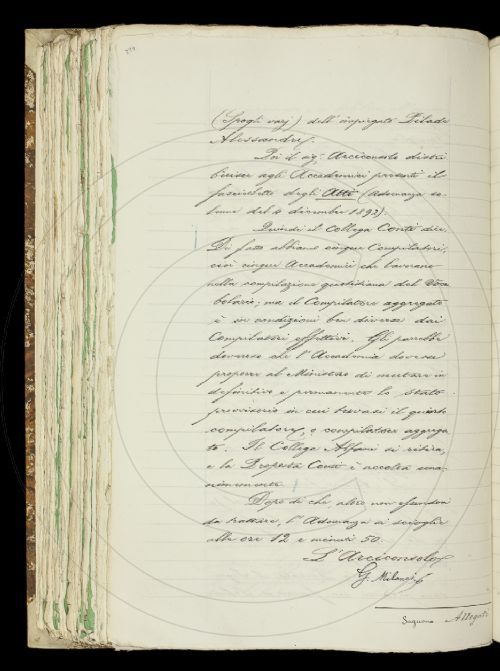 (Spogli varj) dell' impiegato Pilade
Alessandri.
Poi il sig. Arciconsolo distri
buisce agli Accademici presenti il
fascicoletto degli Atti (Adunanza so-
lenne del 4 dicembre 1892).
Quindi il Collega Conti dice:
Di fatto abbiamo cinque Compilatori,
cioè cinque Accademici che lavorano
nella compilazione quotidiana del Voca
bolario; ma il Compilatore aggregato
è in condizioni ben diverse dai
Compilatori effettivi. Gli parrebbe
doveroso che l'Accademia dovesse
proporre al Ministero di mutare in
definitivo e permanente lo stato
provvisorio in cui trovasi il quinto
compilatore, o compilatore aggrega
to. Il Collega Alfani si ritira,
e la Proposta Conti è accolta una-
nimemente.
Dopo di che, altro non essendovi
da trattare, l'Adunanza si scioglie
alle ore 12 e minuti 50.
L'Arciconsolo
G. Milanesi
Seguono Allegati